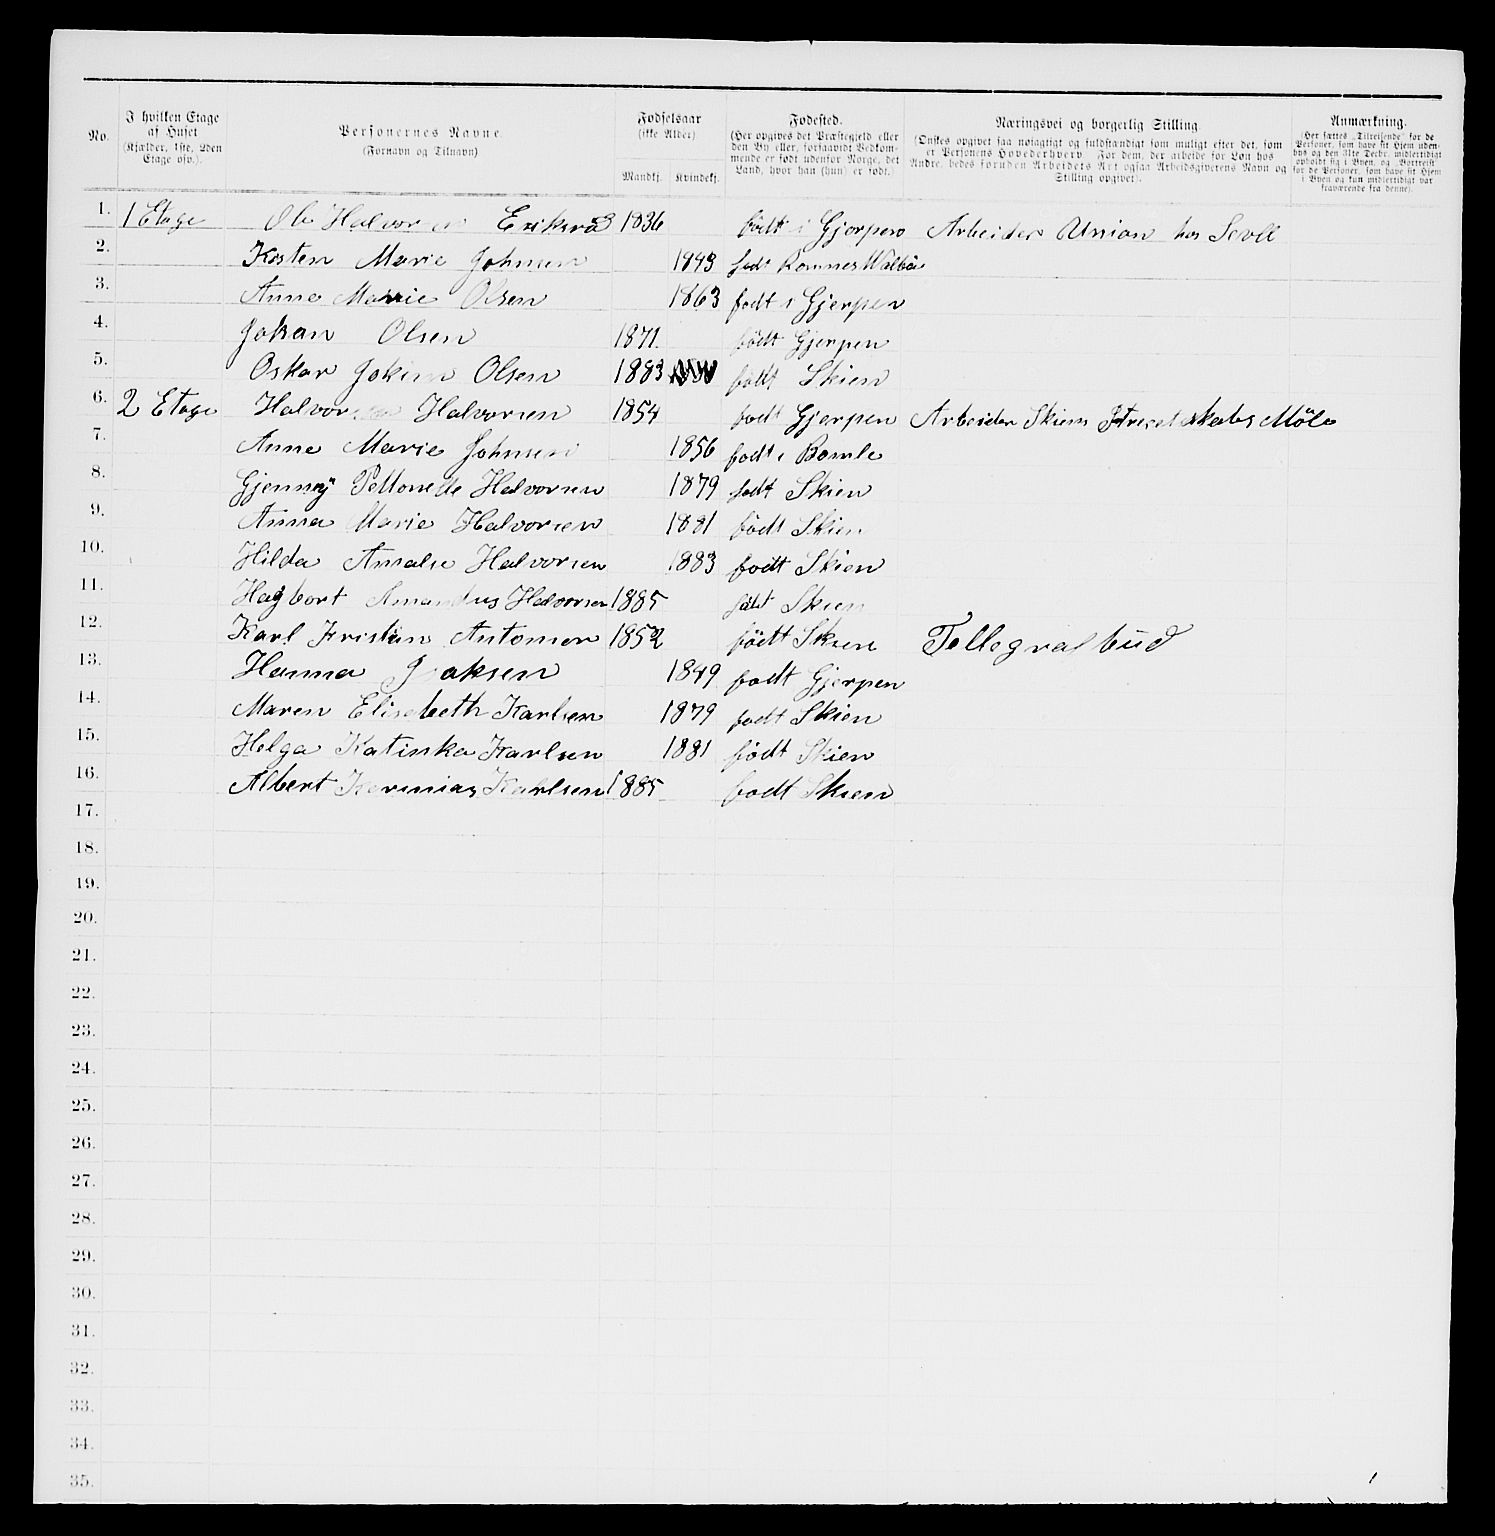 No. | I hvilken Etage af Huset (Kjælder, 1ste, 2den Etage osv.). | Personernes Navne. (Fornavn og Tilnavn) | Fødselsaar (ikke Alder) Mandkj. | Kvindekj. | Fødested. (Her opgives det Præstegjeld eller den By eller, forsaavidt Vedkommende er født udenfor Norge, det Land, hvor han (hun) er født.) | Næringsvei og borgerlig Stilling. (Ønskes opgivet saa nøiagtigt og fuldstændigt som muligt efter det, som er Personens Hovederhverv. For dem, der arbeide for Løn hos Andre, bedes foruden Arbeidets Art ogsaa Arbeidsgiverens Navn og Stilling opgivet). | Anmærkning. (Her sættes „Tilreisende" for de Personer, som have sit Hjem udenbys og den 31te Decbr. midlertidigt opholdt sig i Byen, og „Bortreist" for de Personer, som have sit Hjem i Byen og kun midlertidigt var fraværende fra denne).
1. 1 Etage Ole Halvorsen 1836 født i Gjerpen Arbeider Union hos
2. Kisten Marie Johnsen 1843 født
3. Anne Marie Olsen 1863 født i Gjerpen
4. Johan Olsen 1871. født Gjerpen
5. Oskar Jokim Olsen 1883 født Skien
6. 2 Etage Halvor Halvorsen 1854 født Gjerpen Arbeider Skiens Møle
7. Anne Marie Johnsen 1856 født i Bamle
8. Gjenny Pettonelle Halvorsen 1879 født Skien
9. Anna Marie Halvorsen 1881 født Skien
10. Hilda Amalie Halvorsen 1883 født Skien
11. Hagbort Amandus Halvorsen 1885 født Skien
12. Karl Kristian Antonsen 1852 født Skien Tellegrafbud
13. Hanna Isaksen 1849 født Gjerpen
14. Maren Elisebeth Karlsen 1879 født Skien
15. Helga Katinka Karlsen 1881 født Skien
16. Albert Karlsen 1885 født Skien
17.
18.
19.
20.
21.
22.
23.
24.
25.
26.
27.
28.
29.
30.
31.
32.
33.
34.
35.